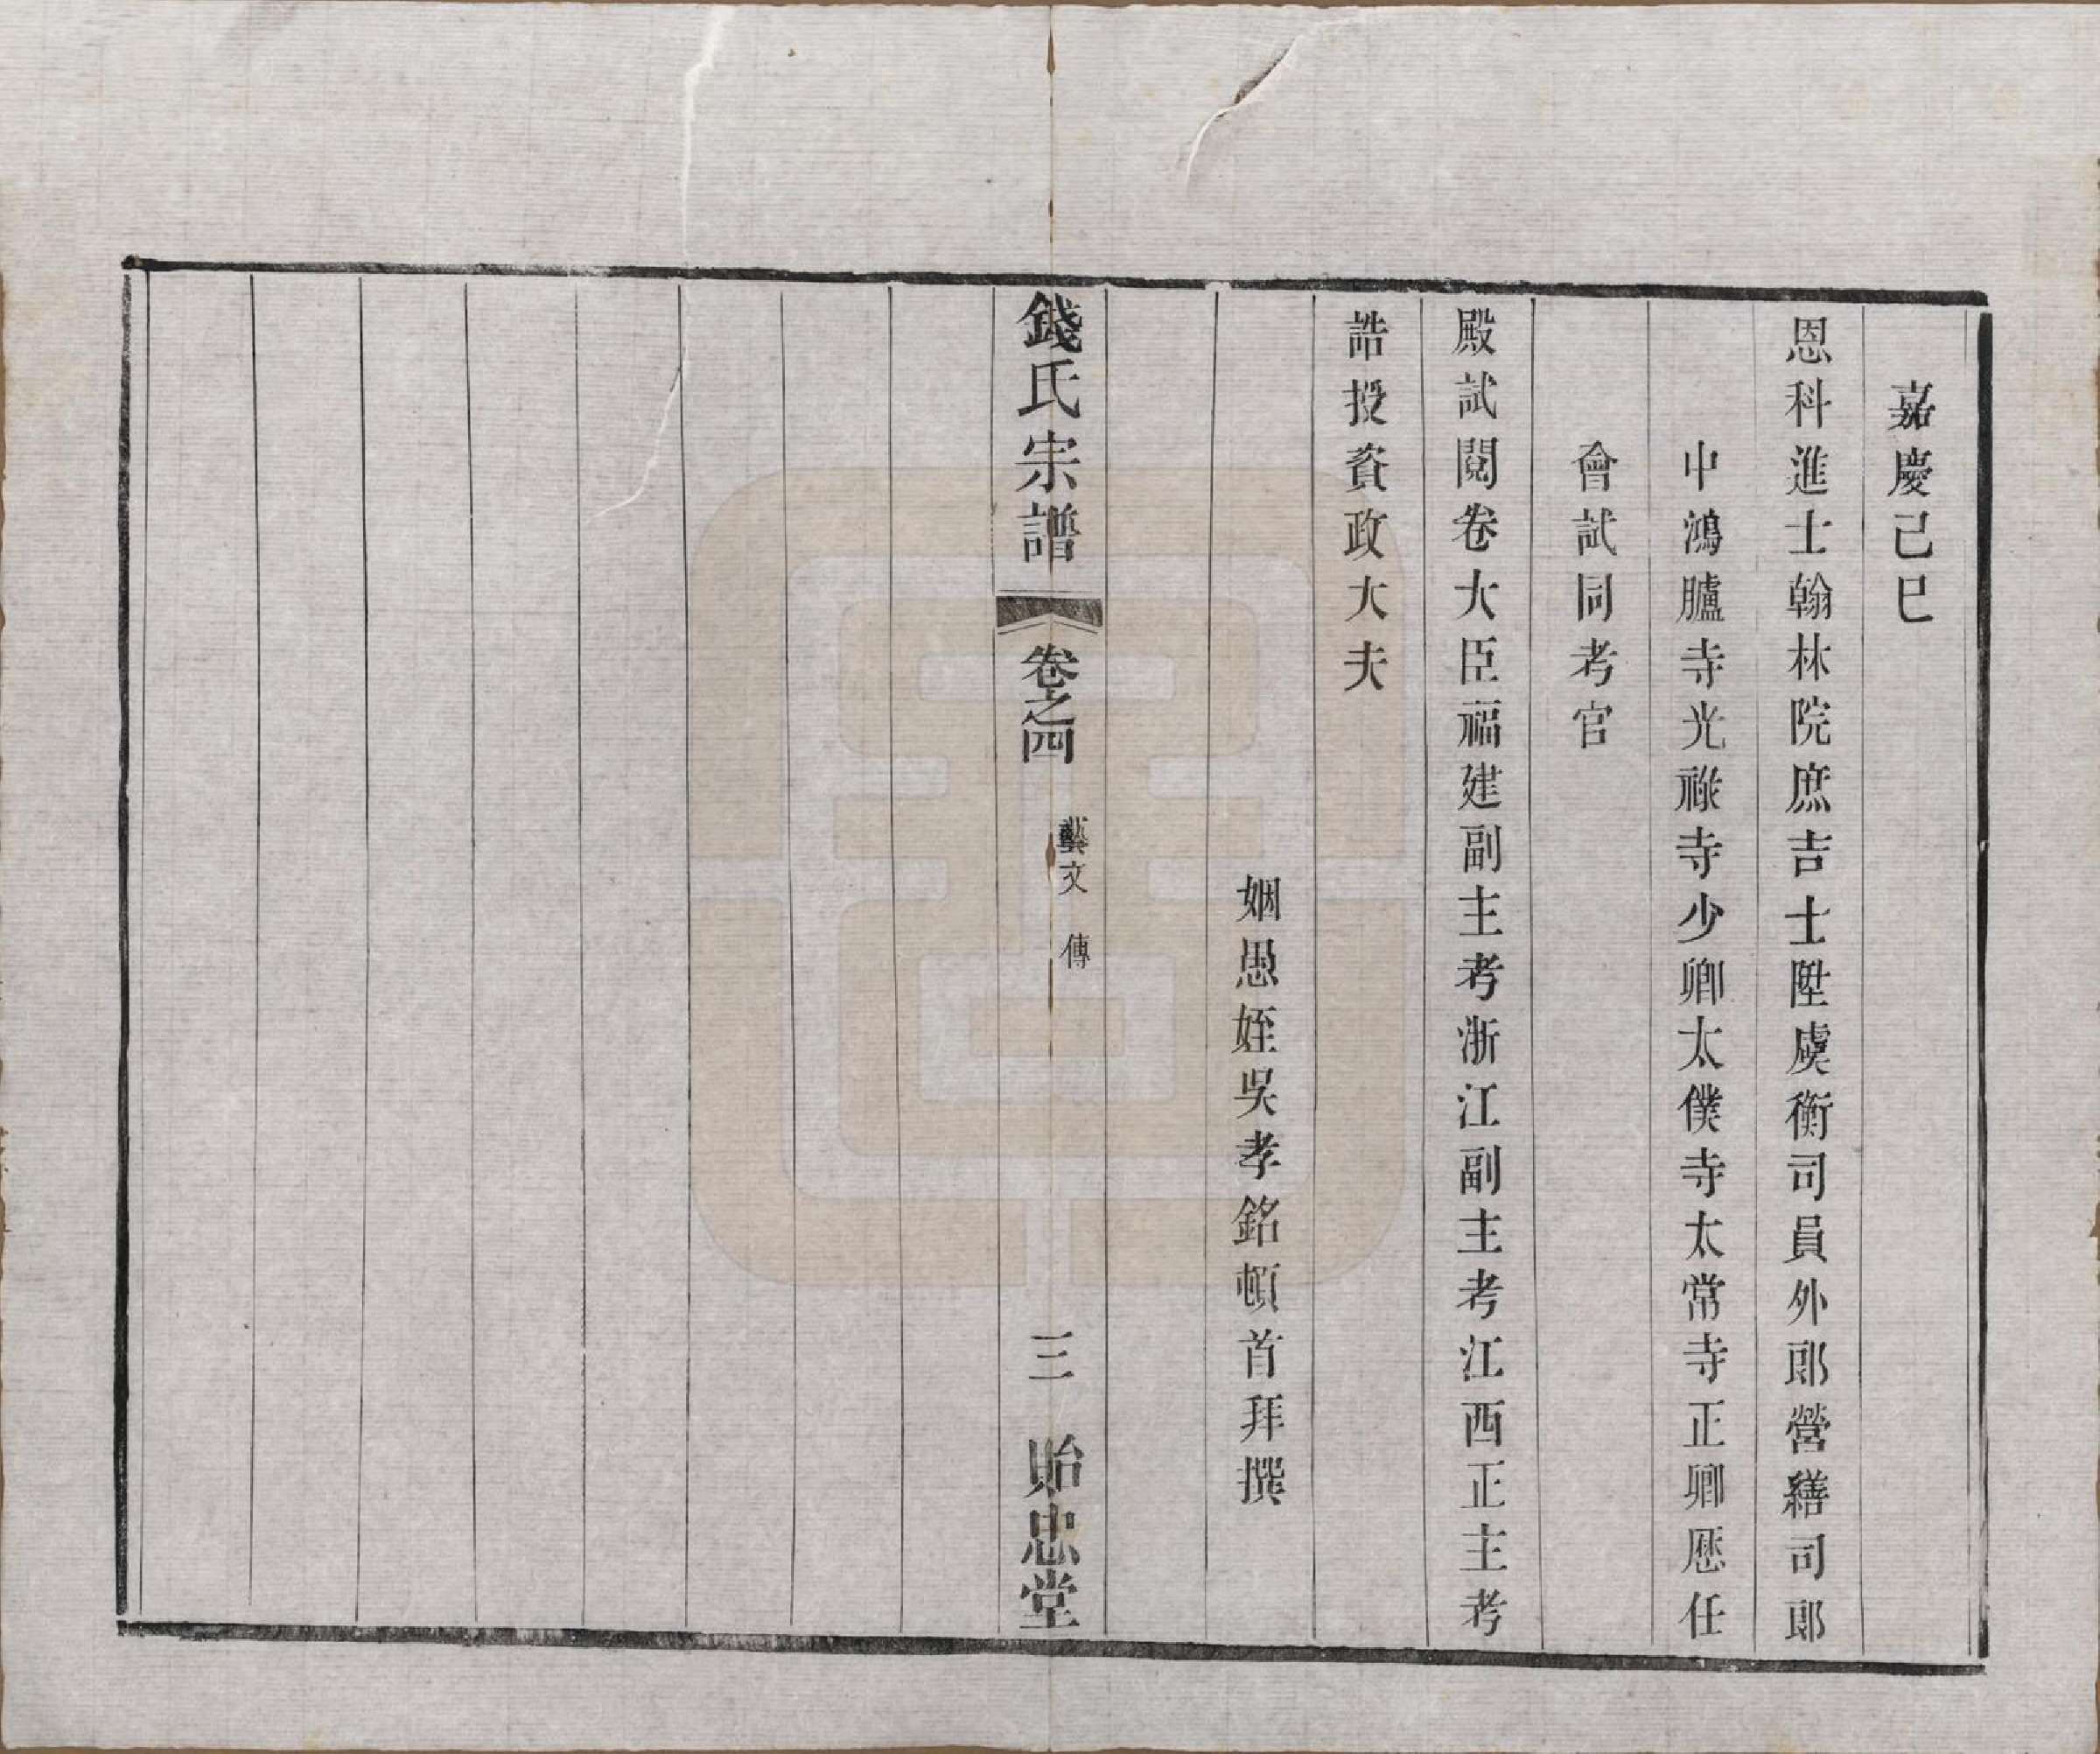 嘉慶己巳
恩科進士翰林院庶吉士陞虞衡司員外郎營繕司郎
中鴻臚寺光祿寺少卿太僕寺太常寺正卿歷任
會試同考官
殿試閱卷大臣福建副主考浙江副主考江西正主考
誥授資政大夫
姻愚姪吳孝銘頓首拜撰
錢氏宗譜 卷之四 藝文 傳 三 貽忠堂